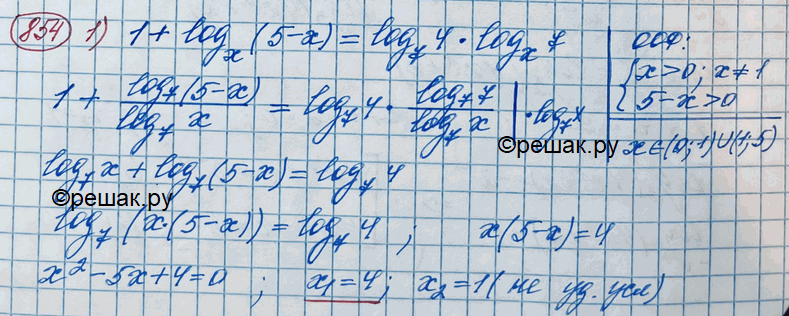 854 1) 1 + log_x (5-x) = log_7 4 · log_x 7
ООФ:
{ x>0; x≠1
5-x>0
x∈(0;1)∪(1;5)
1 + log_7 (5-x) / log_7 x = log_7 4 · log_7 7 / log_7 x | · log_7 x
©решак.ру
log_7 x + log_7 (5-x) = log_7 4
©решак.ру
log_7 (x·(5-x)) = log_7 4 ; x(5-x)=4
x² - 5x + 4 = 0 ; x₁=4; x₂=1 (не уд. усл)